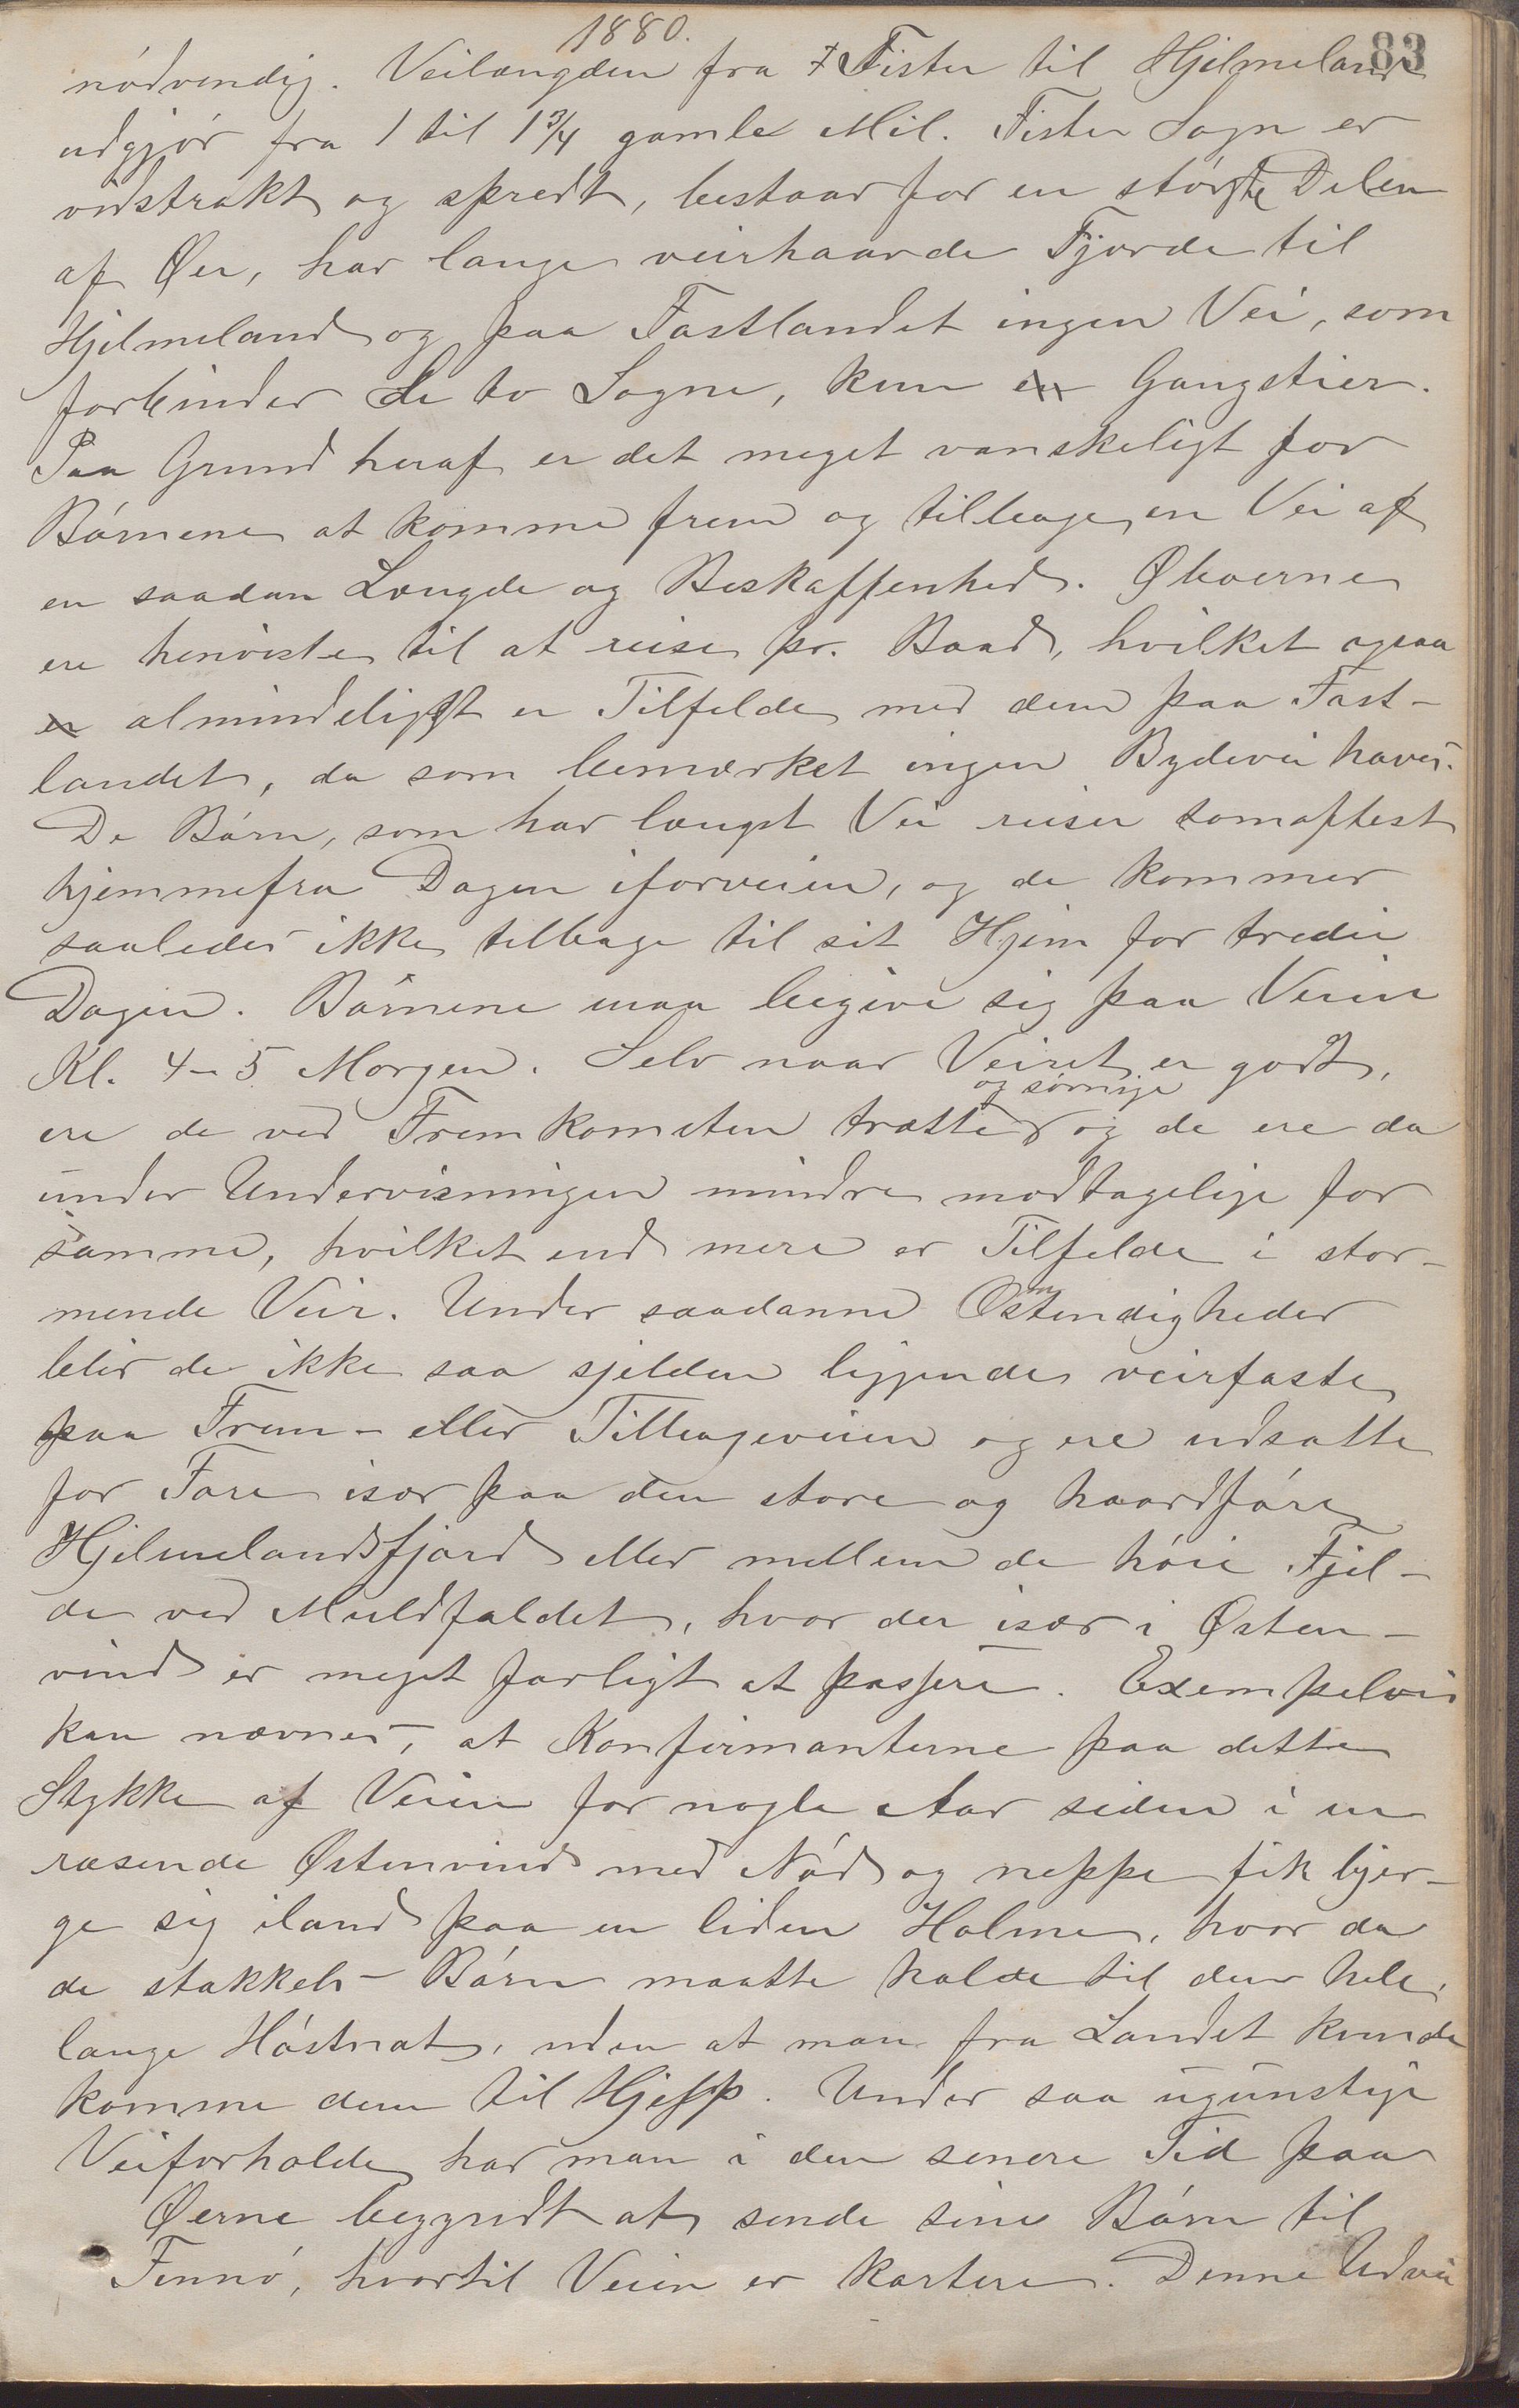 1880.
83
nódvendig. Veilængden fra Fister til Hjelmeland
udgjór fra 1 til 1 3/4 gamle Mil. Fister Sogn er
vidstrakt og spredt, bestaar for en stórste Delen
af Øer, har lange veirhaarde Fjorde til
Hjelmeland og paa Fastlandet ingen Vei, som
forbinder de to Sogne, kun en Gangstier.
Paa Grund heraf er det meget vanskeligt for
Bórnene at komme frem og tilbage en Vei af
en saadan Længde og Beskaffenhed. Øboerne
ere henviste til at reise pr. Baad, hvilket ogsaa
er almindeligst er Tilfelde med dem paa Fast-
landet, da som bemærket ingen Bydevei haves.
De Bórn, som har længst Vei reiser somoftest
hjemmefra Dagen iforveien, og de kommer
saaledes ikke tilbage til sit Hjem for tredie
Dagen. Bórnene maa begive sig paa Veien
Kl. 4-5 Morgen. Selv naar Veiret er godt,
og sórnige
ere de ved Fremkomsten trætte og de ere da
under Undervisningen mindre modtagelige for
samme, hvilket end mere er Tilfelde i stor-
mende Veir. Under saadanne Omstendigheder
blir de ikke saa sjelden liggende veirfaste
paa Frem- eller Tilbageveien og ere udsatte
for Fare især paa den store og haardfóre
Hjelmelandsfjord eller mellem de hóie Fjel-
de ved Muldfaldet, hvor der især i Østen-
vind er meget farligt at passere. Exempelvis
kan nævnes, at Konfirmanterne paa dette
Stykke af Veien for nogle Aar siden i en
rasende Østenvind med Nód og neppe fik bjer-
ge sig iland paa en liden Holme, hvor da
de stakkels Bórn maatte holde til den hele
lange Hóstnat, uden at man fra Landet kunde
komme dem til Hjelp. Under saa ugunstige
Veiforholde har man i den senere Tid paa
Øerne begyndt at sende sine Bórn til
Finnó, hvortil Veien er kortere. Denne Udvei